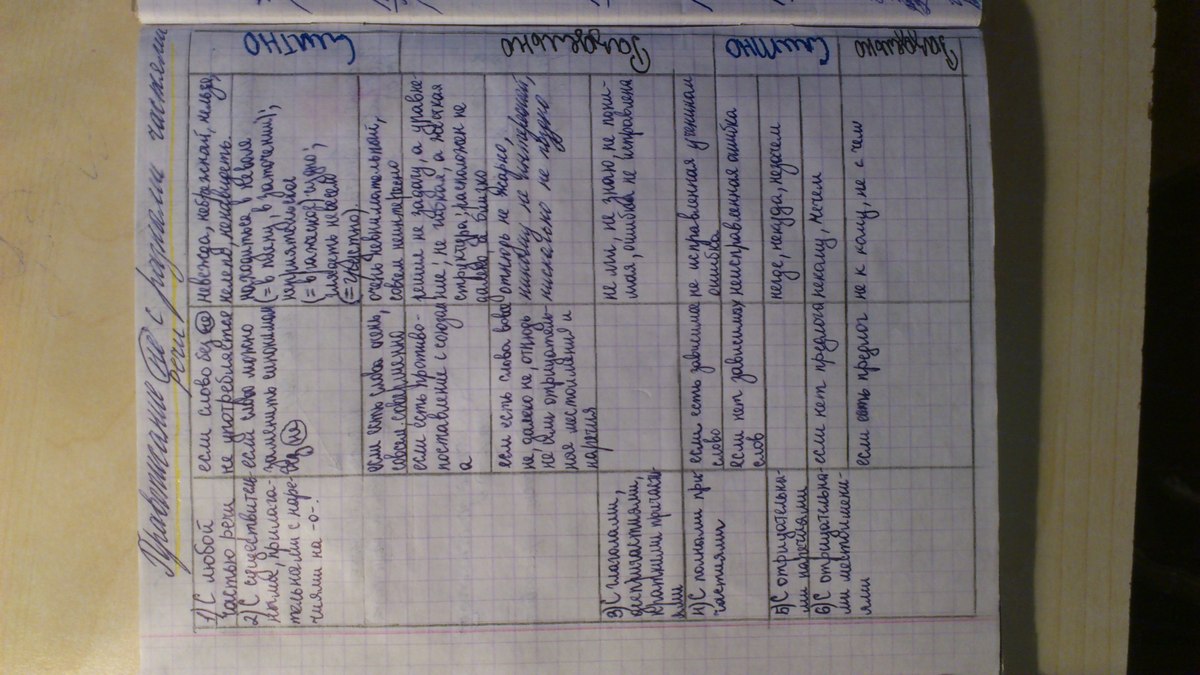 Правописание (не) с разными частями
речи
1) С любой
частью речи
если слово без (не)
не употребляется
невежда, небрежный, нельзя,
нелепо, ненавидеть.
2) С существитель-
ными, прилага-
тельными с наре-
чиями на -о-.
если слово можно
заменить синонимом
без (не)
находиться в неволе
(= в плену, в заточении);
неприятельское
(= вражеское) судно;
(= грустно)
если есть слова очень,
совсем, совершенно
очень невнимательный,
совсем неинтересно
Слитно
если есть противо-
поставление с союзом
а
решил не задачу, а уравне-
ние, не глубокая, а мелкая
далеко а близко
если есть слова вовсе
не, далеко не, отнюдь
не или отрицатель-
ные местоимения и
наречия
отнюдь не жарко,
никому не интересный,
нисколько не трудно
Раздельно
3) С глаголами,
деепричастиями,
краткими причасти-
ями
не ли, не знаю, не пони-
мая, ошибка не исправлена
4) С полными при-
частиями
если есть зависимое
слово
не исправленная учеником
ошибка
если нет зависимых
слов
неисправленная ошибка
5) С отрицательны-
ми наречиями
негде, некуда, незачем
Слитно
6) С отрицательны-
ми местоимени-
ями
если нет предлога
некому, нечем
если есть предлог
не к кому, не с чем
Раздельно